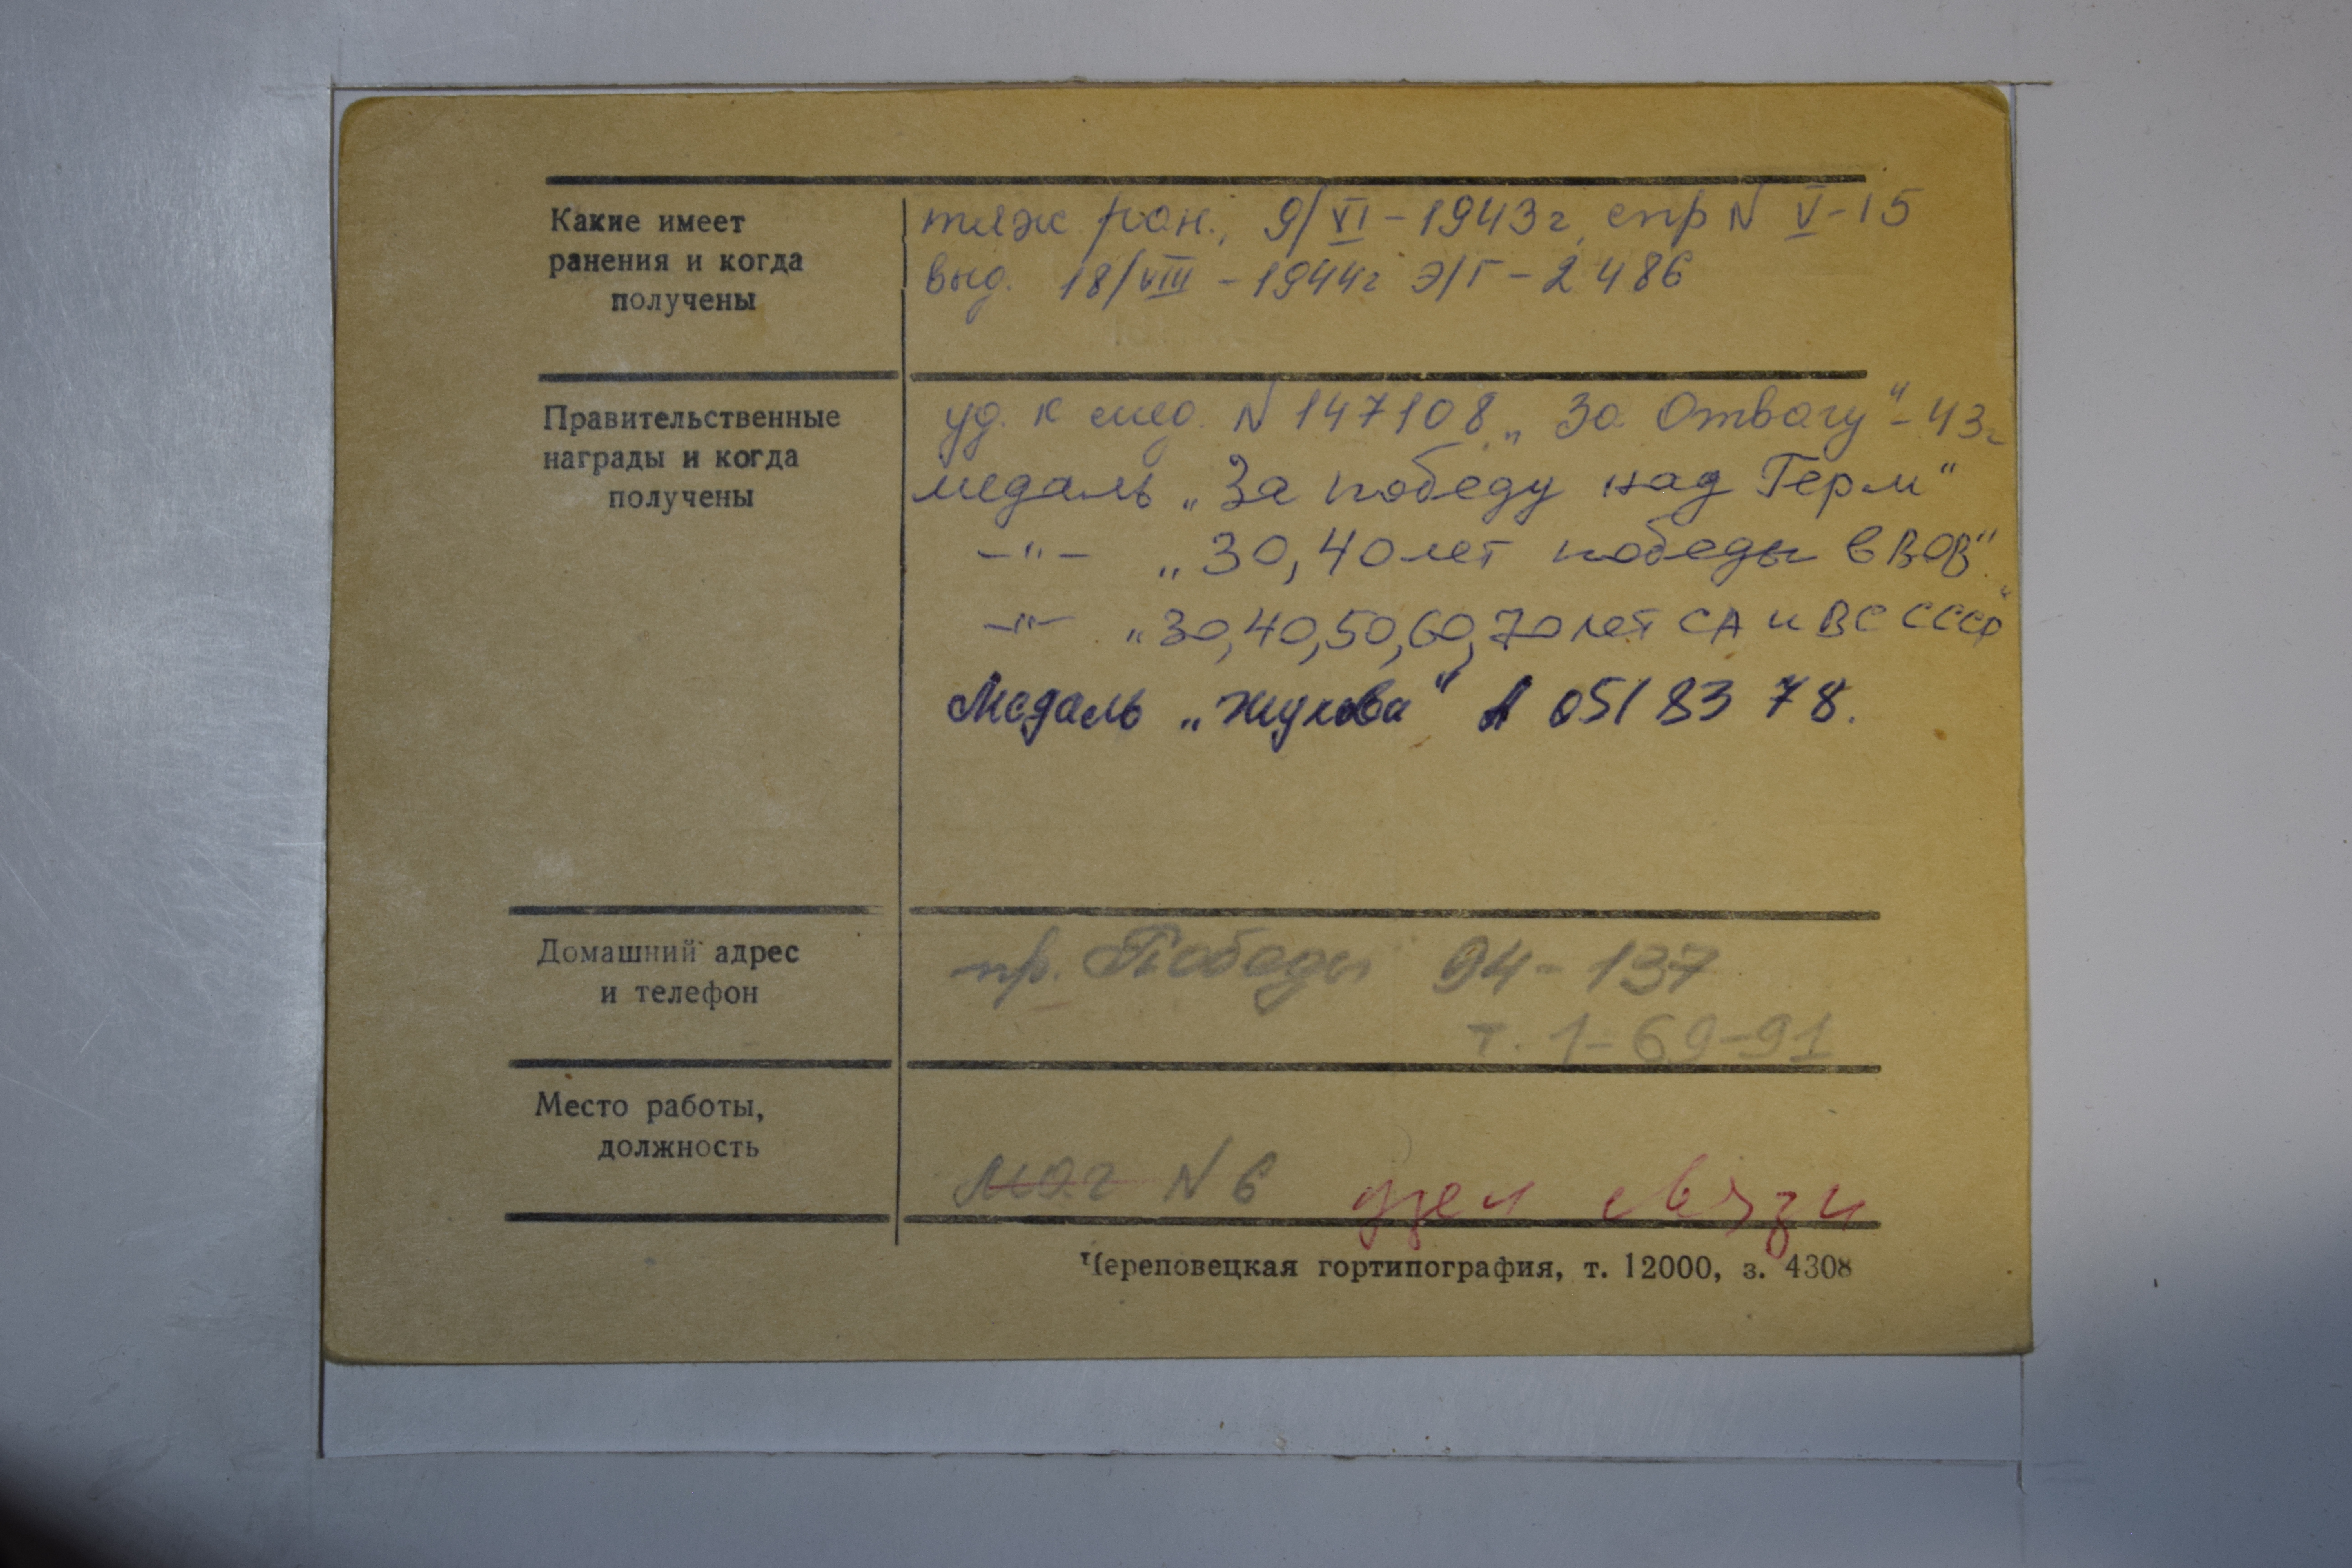 Какие имеет
ранения и когда
получены
тяж ран., 9/VI - 1943г, спр N V-15
выд. 18/VIII - 1944г Э/Г - 2486
Правительственные
награды и когда
получены
уд. к мед. N 147108 „За Отвагу" - 43г
медаль „За победу над Герм"
-"- „30, 40 лет победы в ВОВ"
-"- „30, 40, 50, 60, 70 лет СА и ВС СССР"
Медаль „Жукова" А 0518378.
Домашний адрес
и телефон
пр. Победы 94 - 137
т. 1-69-91
Место работы,
должность
маг N 6 узел связи
Череповецкая гортипография, т. 12000, з. 4308